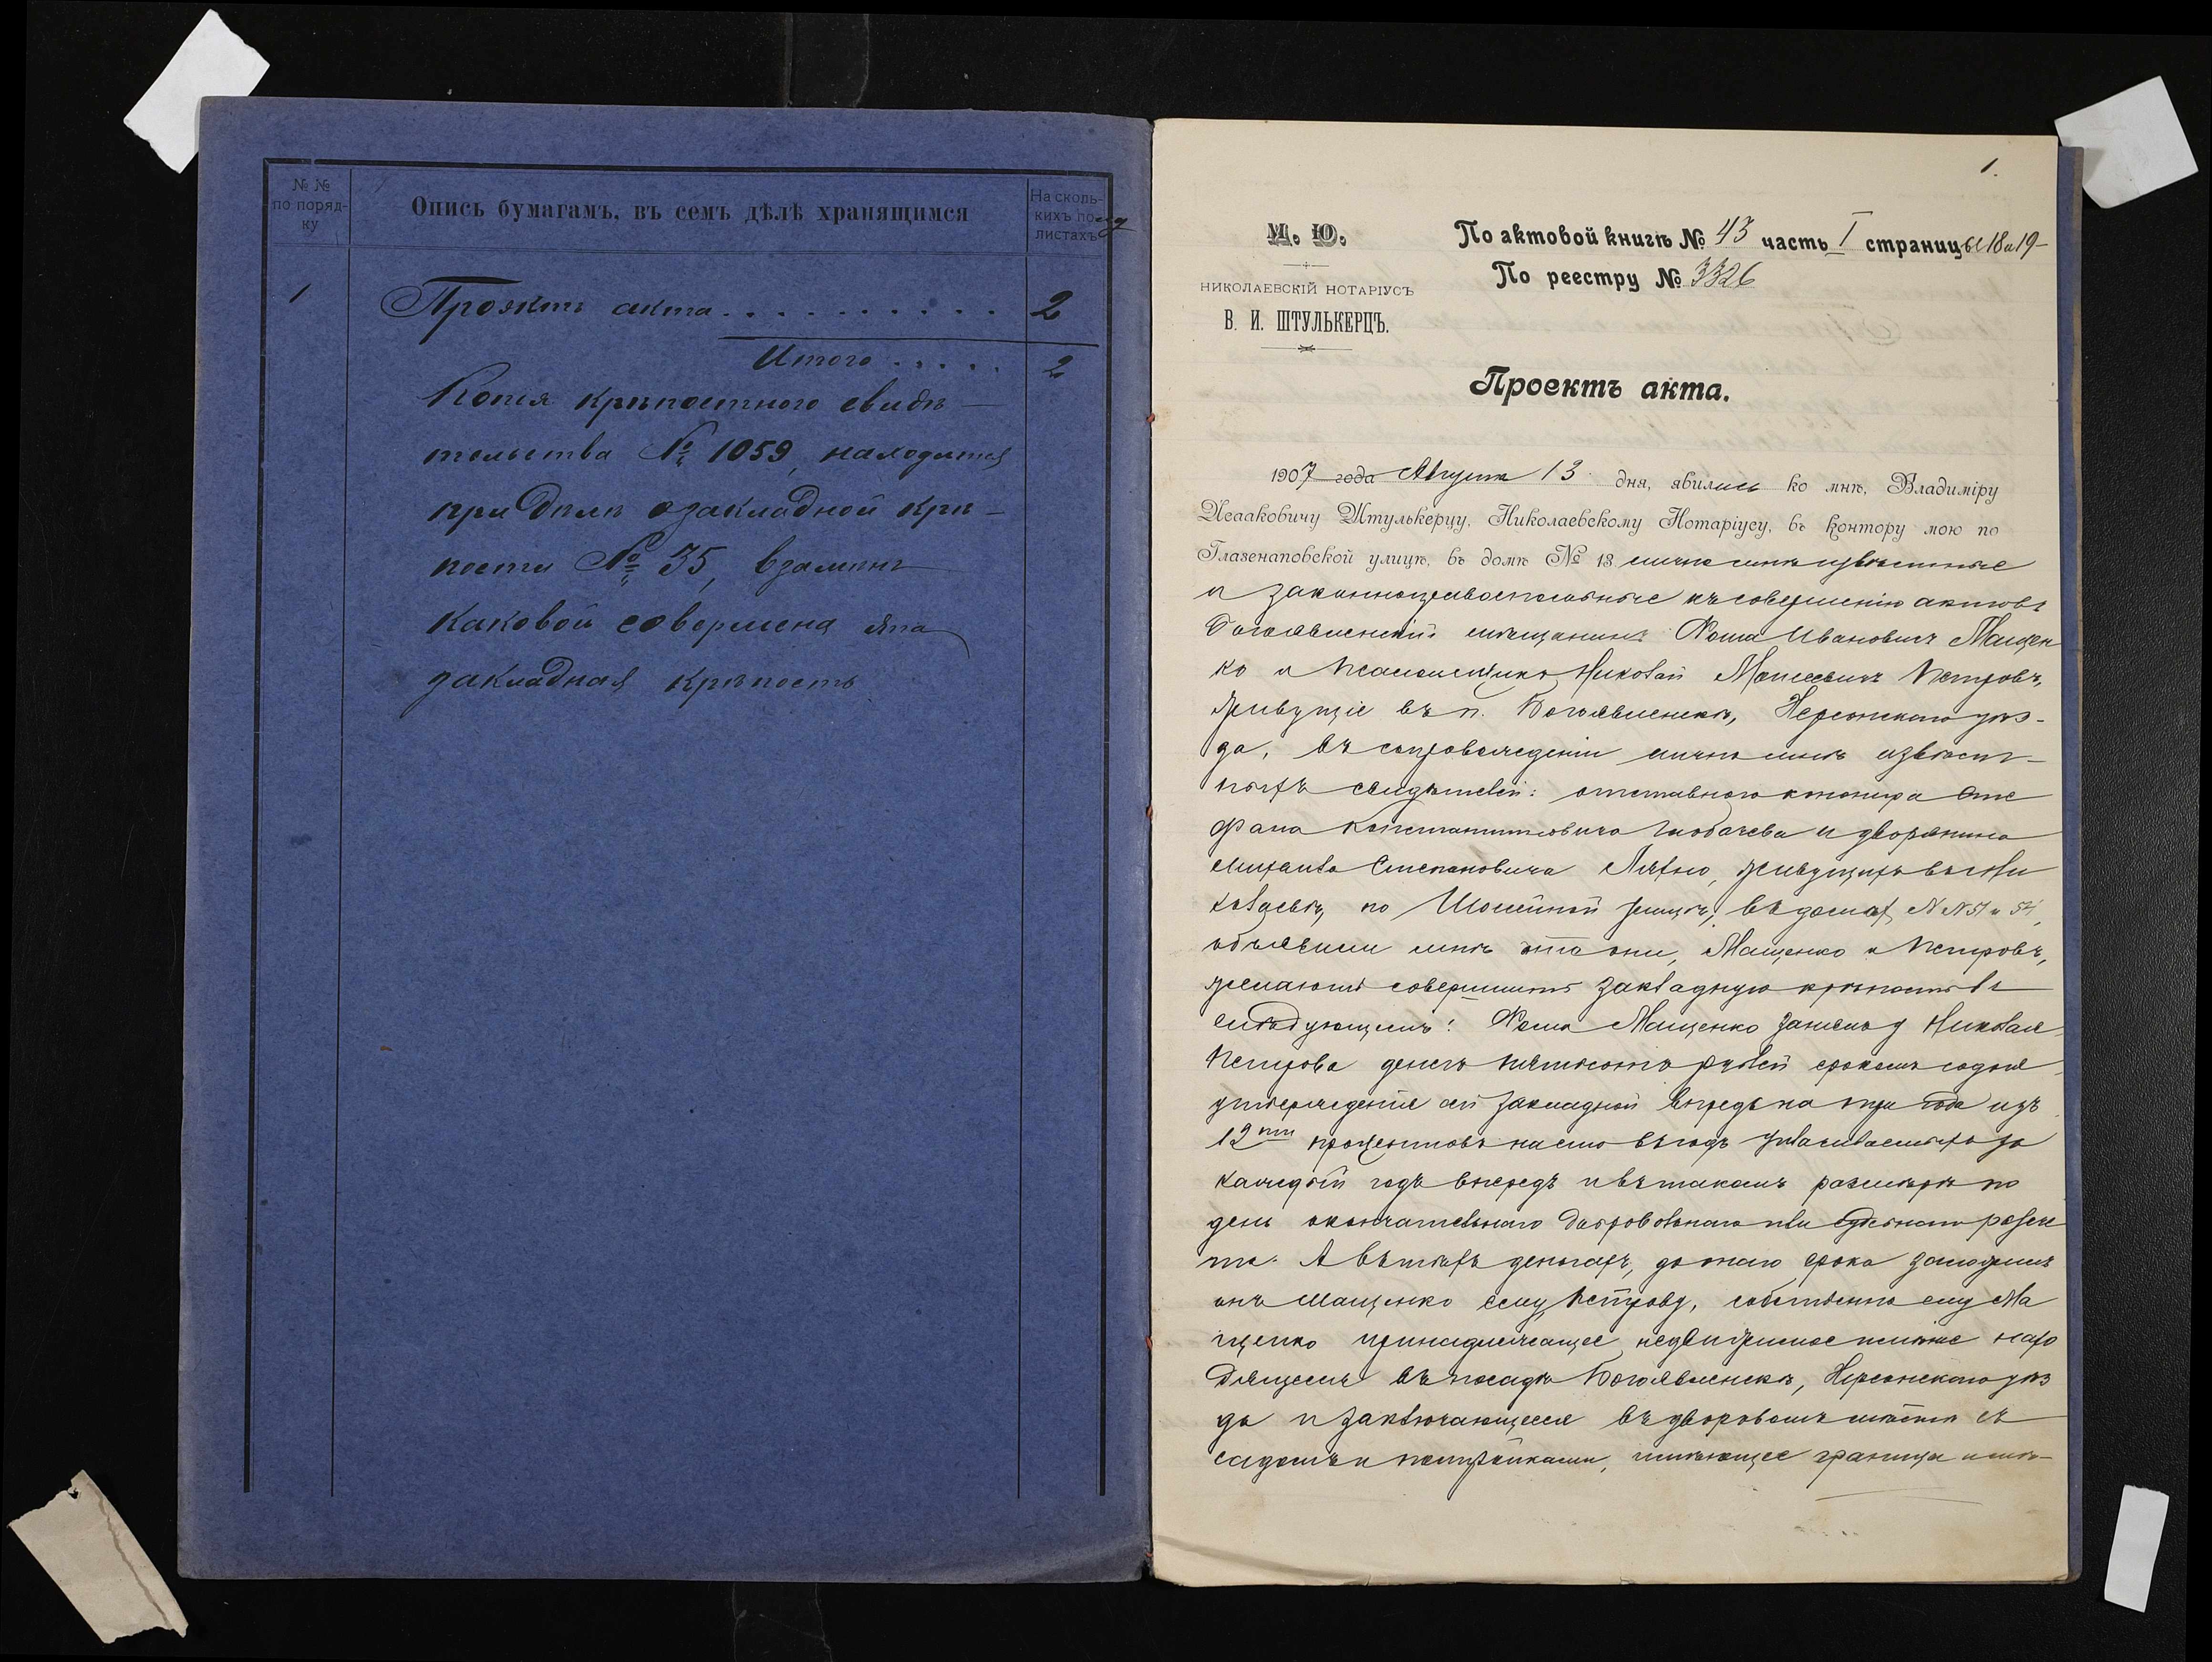 № №
по поряд-
ку
Опись бумагамъ, въ семъ дѣлѣ хранящимся
На сколь-
кихъ по
листахъ
1 Проэктъ акта . . . . . . . . . . 2
Итого . . . . . 2
Копія крѣпостного свидѣ-
тельства № 1059, находится
при дѣлѣ о закладной крѣ-
пости № 35, взамѣнъ
каковой совершена эта
закладная крѣпость
1.
М. Ю.
НИКОЛАЕВСКІЙ НОТАРІУСЪ
В. И. ШТУЛЬКЕРЦЪ.
По актовой книгѣ № 43 часть I страницы 18 и 19-
По реестру № 3326
Проектъ акта.
1907 года Августа 13 дня, явились ко мнѣ, Владиміру
Исааковичу Штулькерцу, Николаевскому Нотаріусу, въ контору мою по
Глазенаповской улицѣ, въ домѣ № 13 лично мнѣ извѣстные
и законноправоспособные къ совершенію актовъ
Богоявленскій мѣщанинъ Фома Ивановичъ Мащен
ко и Николай Петровъ,
живущіе въ п. Богоявленскѣ, Херсонскаго уѣз-
да, въ сопровожденіи лично мнѣ извѣст-
ныхъ свидѣтелей: отставного Сте
фана Константиновича и дворянина
Михаила Степановича живущихъ въ Ни
колаевѣ, по улицѣ, въ домахъ N N 51 и 54,
объявили мнѣ что они, Мащенко и Петровъ,
желаютъ совершить закладную крѣпость въ
слѣдующемъ: Фома Мащенко занялъ у Николая
Петрова денегъ пятьсотъ рублей срокомъ со дня
утвержденія сей закладной впредь на три года изъ
12ти процентовъ на сто въ годъ уплачиваемыхъ за
каждый годъ впередъ и въ такомъ размѣрѣ по
день окончательнаго добровольнаго или судебнаго расче
та. А въ тѣхъ деньгахъ, до того срока заложилъ
онъ Мащенко ему, Петрову, собственно ему Ма
щенко принадлежащее недвижимое имѣніе нахо
дящееся въ посадѣ Богоявленскѣ, Херсонскаго уѣз
да и заключающееся въ дворовомъ мѣстѣ съ
садомъ и постройками, имѣющее границы и мѣ-